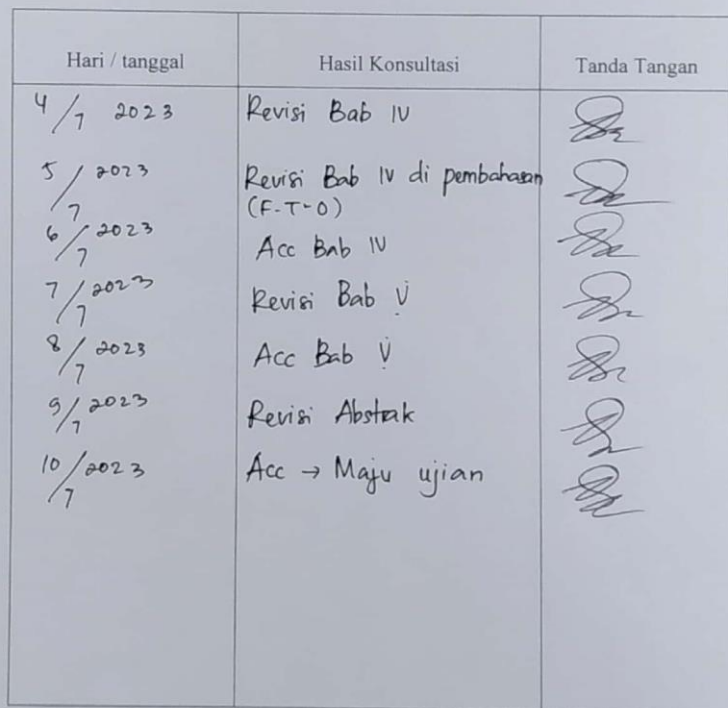 Hari / tanggal Hasil Konsultasi Tanda Tangan
4/7 2023 Revisi Bab IV
5/7 2023 Revisi Bab IV di pembahasan
(F-T-O)
6/7 2023 Acc Bab IV
7/7 2023 Revisi Bab V
8/7 2023 Acc Bab V
9/7 2023 Revisi Abstrak
10/7 2023 Acc → Maju ujian